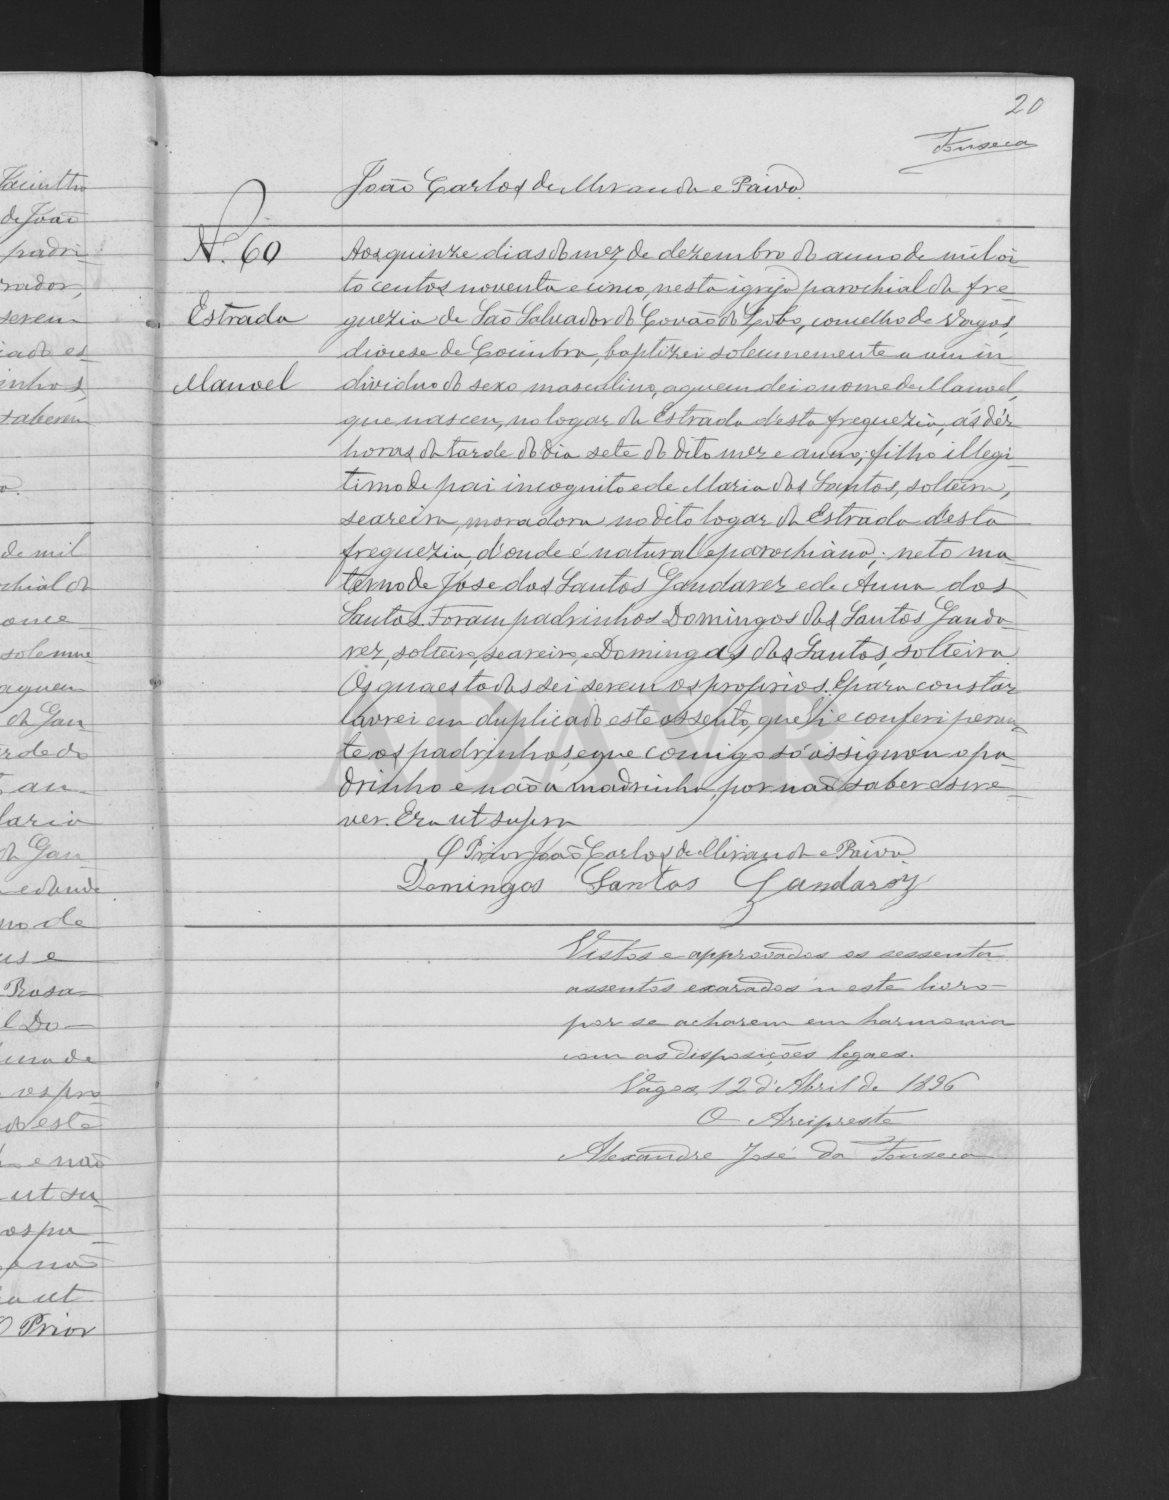 20
Fonseca
João Carlos de Miranda e Paiva
N.º 60
Estrada
Manoel
Aos quinze dias do mez de dezembro do anno de mil oi-
to centos noventa e cinco, nesta igreja parochial da fre-
guezia de São Salvador do Covão do Lobo, comcelho de Vagos,
diocese de Coimbra, baptizei solemnemente a um in-
dividuo do sexo masculino, a quem dei o nome de Manoel,
que nasceu, no logar da Estrada d'esta freguezia, ás déz
horas da tarde do dia sete do dito mez e anno; filho illegi-
timo de pai incognito e de Maria dos Santos, solteira,
seareira, moradora no dito logar da Estrada d'esta
freguezia, d'onde é natural e parochiana; neto ma-
terno de José dos Santos Gandarez e de Anna dos
Santos. Foram padrinhos Domingos dos Santos Ganda-
rez, solteiro, seareiro, e Domingas dos Santos, solteira.
Os quaes todos sei serem os proprios. E para constar
lavrei em duplicado este assento, que li e conferi peran-
te os padrinhos, e que comigo só assignou o pa-
drinho e não a madrinha, por não saber escre-
ver. Era ut supra
O Prior João Carlos de Miranda e Paiva
Domingos Santos Gandarez
Vistos e approvados os sessenta
assentos exarados n'este livro
por se acharem em harmonia
com as disposições legaes.
Vagos, 12 d'Abril de 1896
O Arcipreste
Alexandre José da Fonseca
ADAVR
Jacintho
de João
padri-
rador,
serem
es-
inhos,
saberem
de mil
chial da
once
solemne-
aquem
da Gan-
an-
da Gan-
no de
us e
Rosa
os pro
este
e não
ut su-
os pa-
ut
O Prior